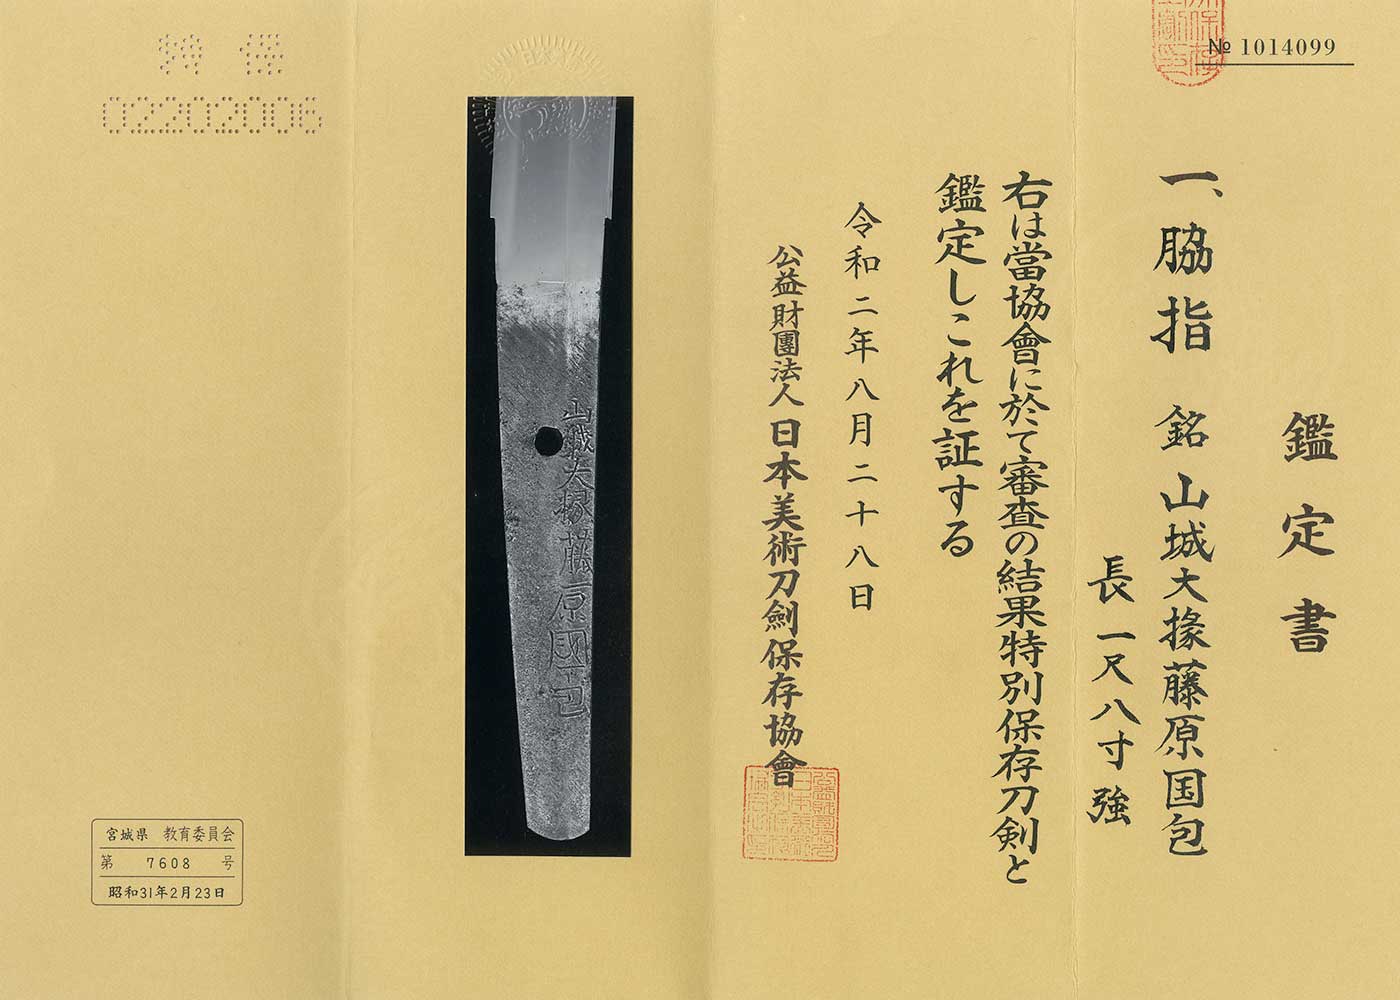 № 1014099
鑑定書
一、脇指 銘 山城大掾藤原国包
長一尺八寸強
右は當協會に於て審査の結果特別保存刀剣と
鑑定しこれを証する
令和二年八月二十八日
公益財團法人 日本美術刀劍保存協會
山城大掾藤原國包
特保
02202006
宮城県 教育委員会
第 7608 号
昭和31年2月23日